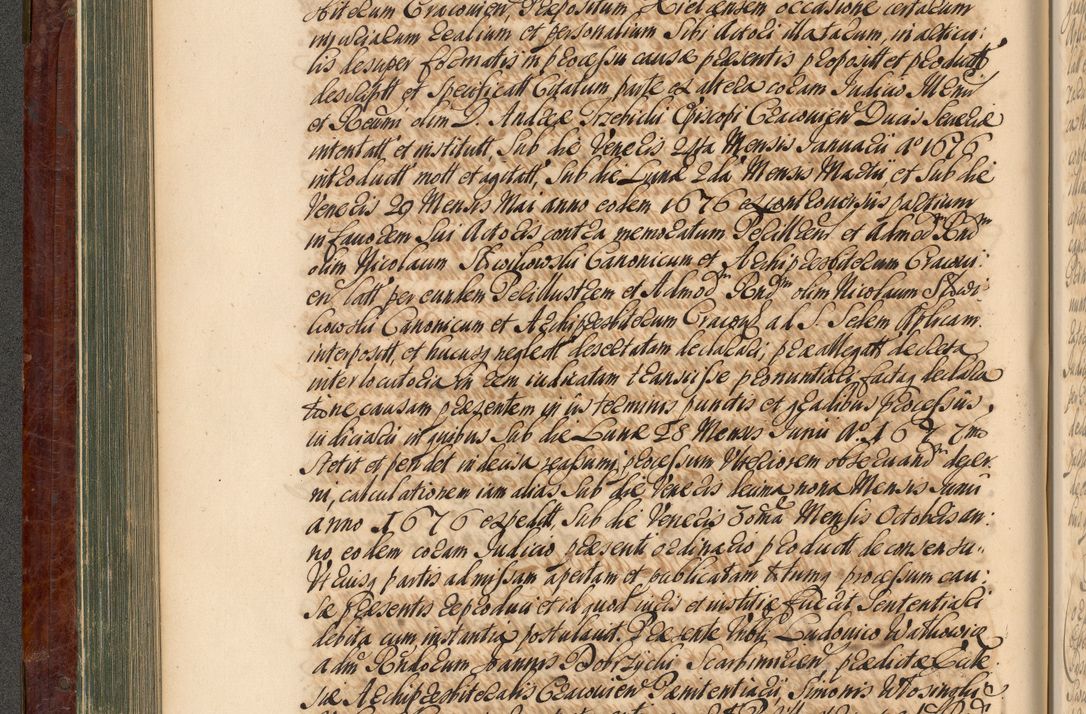 biterum Cracovien, Præpositum Kielcensem occasione certarum
iniuriarum realium et personalium Sibi Actori illatarum, in articu:
lis desuper formatis in processu causæ præsentis proposit et product
descript et specificat Citatum, parte ex altera coram Judicio Illmi
et Rdmi olim D. Andreæ Trzebicki Episcopi Cracovien Ducis Severiæ
intentatt et institutt, Sub die Veneris 24ta Mensis Januarii Aº 1676
introductt mott et agitatt, Sub die Lunæ 2da Mensis Martii et Sub die
Veneris 29 Mensis Mai anno eodem 1676 ex controversiis partium
in favorem Sui Actoris contra memoratum Perillrem et Admod Rnd
olim Nicolaum Słowikowski Canonicum et Archipresbiterum Cracovi:
en latt per eundem Perillustrem et Admod Rnd olim Nicolaum Słowi:
kowski Canonicum et Archipresbiterum Cracovien ad S. Sedem Aplicam
interpositt, et hucusq neglectt desertatam declarari, præallegatt decreta
interlocutoria in rem iudicatam transivisse pronuntiari, factaq declara
tione causam præsentem in iis terminis punctis et gradibus processus
iudiciarii in quibus Sub die Lunæ 28 Mensis Junii Aº 1677mo
stetit et pendet indecisa reassumi, processum Ulteriorem observand decer
ni, calculationem iam alias Sub die Veneris decima nona Mensis Junii
anno 1676 expeditt, Sub die Veneris 30ma Mensis Octobris an:
no eodem coram Judicio præsenti ordinario productt de consensu
Utriusq partis admissam apertam et publicatam totumq processum cau:
sæ Præsentis reproduci et id quod iuris et iustitiæ fuerit Sententiari
debita cum instantia postulavit. Præsente Nobli Ludovico Witkowicz
adm Rndorum Joannis Dobrzycki Scarbimirien, prædictæ Eccle
siæ Archipresbiteralis Cracovien Pœnitentiarii, Simonis Włosinski